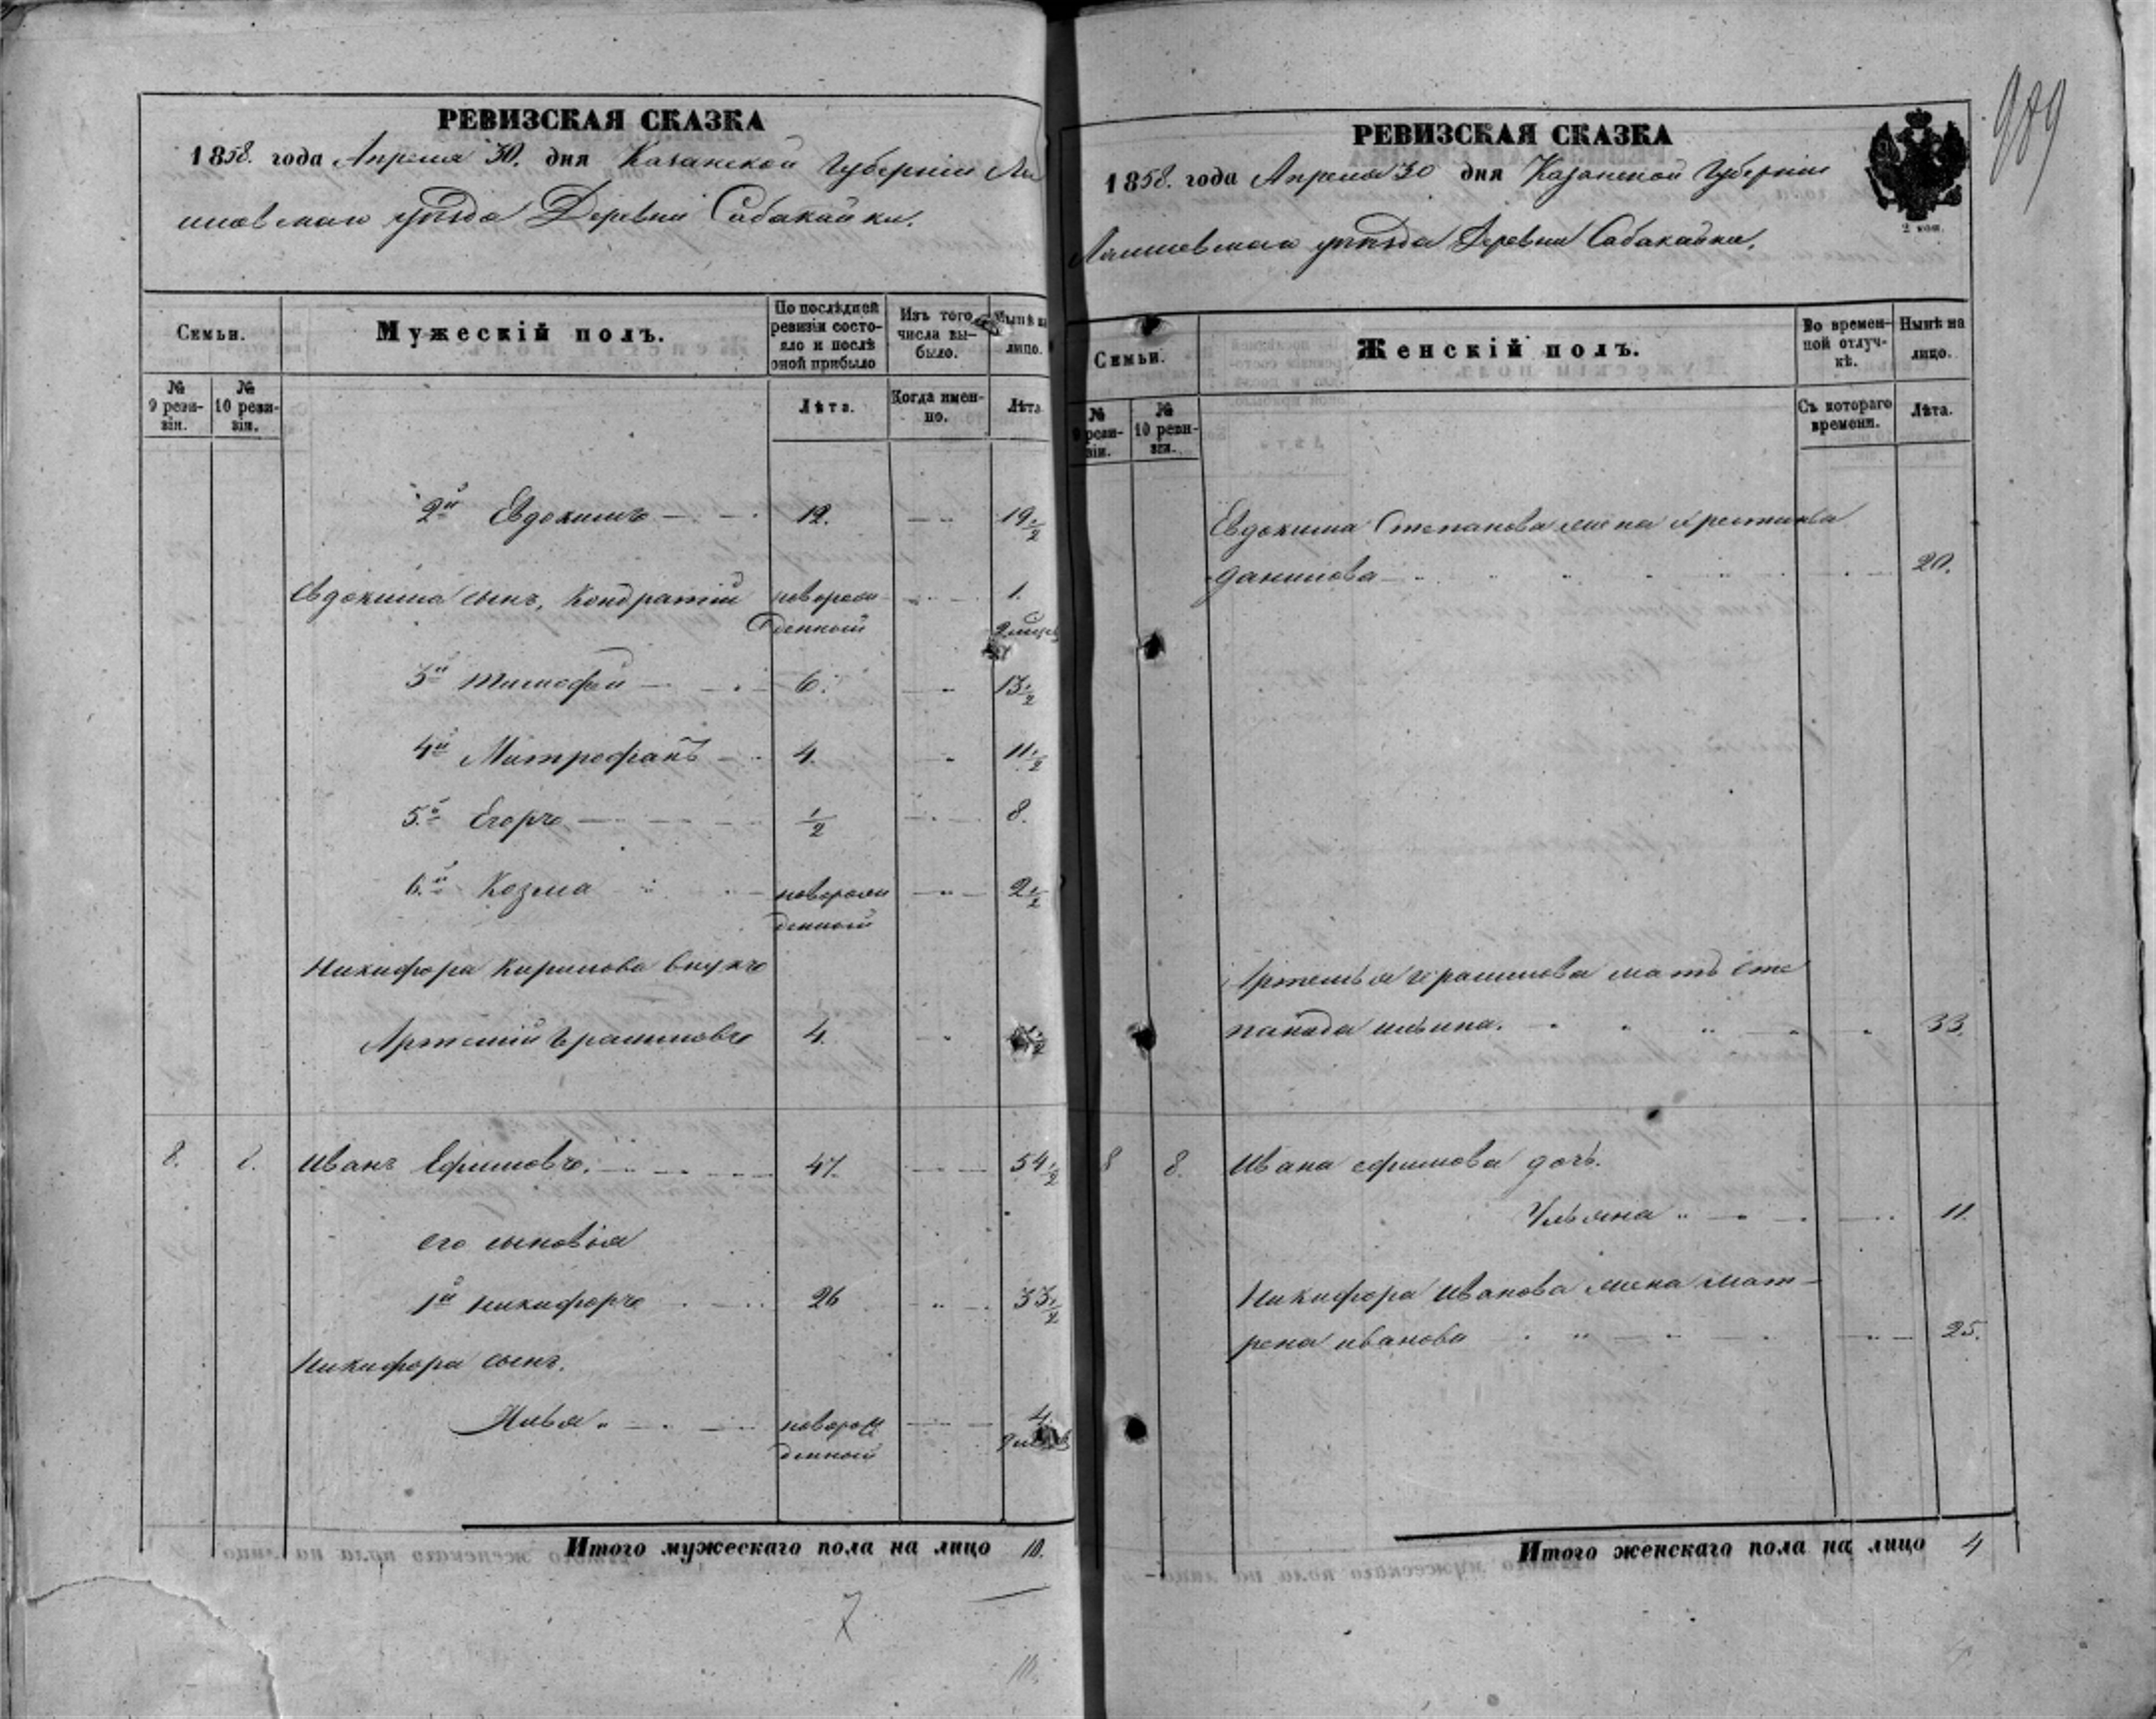 РЕВИЗСКАЯ СКАЗКА
1858. года Апреля 30. дня Казанской Губерніи Ла
ишевскаго уѣзда Деревни Сабакайки.
Семьи.
Мужескій полъ.
По послѣдней ревизіи состояло и послѣ оной прибыло
Изъ того числа выбыло.
Нынѣ на лицо.
№ 9 ревизіи.
№ 10 ревизіи.
Лѣта.
Когда именно.
Лѣта
2й Евдокимъ 12. 19 1/2
Евдокима сынъ, Кондратій новорож 1.
денный
3й Тимофей 6. 13 1/2
4й Митрофанъ 4. 11 1/2
5й Егоръ 1/2 8.
6й Козма новорож 2 1/2
денный
Никифора Кирилова внукъ
Артемій 4.
8. 8. Иванъ Ефимовъ. 47. 54 1/2
его сыновья
1й Никифоръ 26 33 1/2
Никифора сынъ.
Илья новорож 4.
денный
Итого мужескаго пола на лицо 10.
7
10.
РЕВИЗСКАЯ СКАЗКА
1858. года Апреля 30 дня Казанской Губерніи
Лаишевскаго уѣзда Деревни Сабакайки.
2 коп.
989
Семьи.
Женскій полъ.
Во временной отлучкѣ.
Нынѣ на лицо.
№ 9 ревизіи.
№ 10 ревизіи.
Съ котораго времени.
Лѣта.
Евдокима Степанова жена
Данилова 20.
мать Сте
панида Ильина. 33.
8 8. Ивана Ефимова дочь.
Ульяна 11.
Никифора Иванова жена Мат-
рена Иванова 25.
Итого женскаго пола на лицо 4